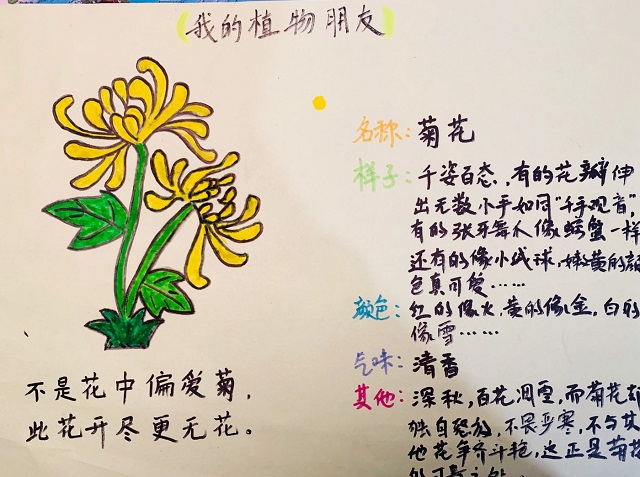 (我的植物朋友)
名称:菊花
样子:千姿百态,有的花瓣伸
出无数小手如同“千手观音”,
有的张牙舞爪像螃蟹一样
还有的像小绒球,嫩黄的颜
色真可爱……
颜色:红的像火,黄的像金,白的
像雪……
气味:清香
其他:深秋,百花凋零,而菊花却
独自绽放,不畏严寒,不与其
他花争齐斗艳,这正是菊花
的可贵之处。
不是花中偏爱菊,
此花开尽更无花。